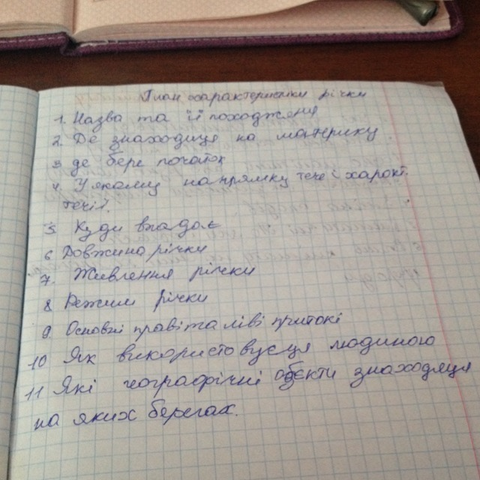 План характеристики річки
1. Назва та її походження
2. Де знаходиця на материку
3 де бере початок
4. У якому напрямку тече і характ.
течії.
5 Куди впадає
6 Довжина річки
7. Живлення річки
8 Режим річки
9 Основні праві та ліві притокі
10 Як використовуєця людиною
11 Які географічні обєкти знаходяця
на яких берегах.